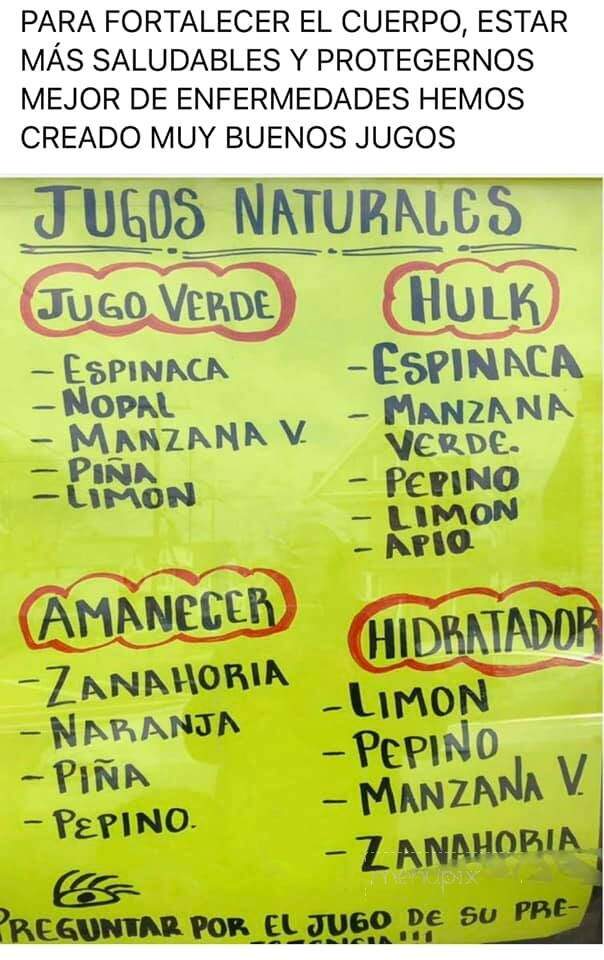 PARA FORTALECER EL CUERPO, ESTAR
MÁS SALUDABLES Y PROTEGERNOS
MEJOR DE ENFERMEDADES HEMOS
CREADO MUY BUENOS JUGOS
JUGOS NATURALES
JUGO VERDE
- ESPINACA
- NOPAL
- MANZANA V.
- PIÑA
- LIMON
HULK
- ESPINACA
- MANZANA
VERDE.
- PEPINO
- LIMON
- APIO
AMANECER
- ZANAHORIA
- NARANJA
- PIÑA
- PEPINO.
HIDRATADOR
- LIMON
- PEPINO
- MANZANA V.
- ZANAHORIA
menupix
PREGUNTAR POR EL JUGO DE SU PRE-
!!!